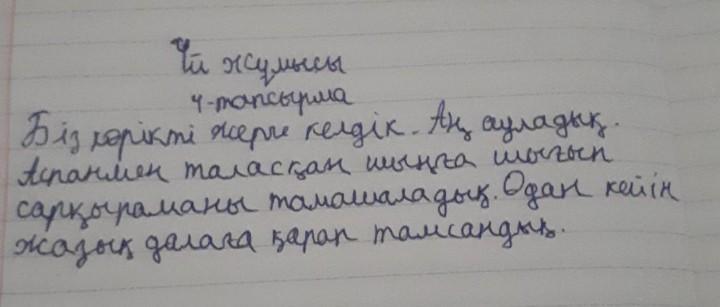 Үй жұмысы
4-тапсырма
Біз көрікті жерге келдік. Аң ауладық.
Аспанмен таласқан шыңға шығып
сарқыраманы тамашаладық. Одан кейін
жазық далаға қарап тамсандық.